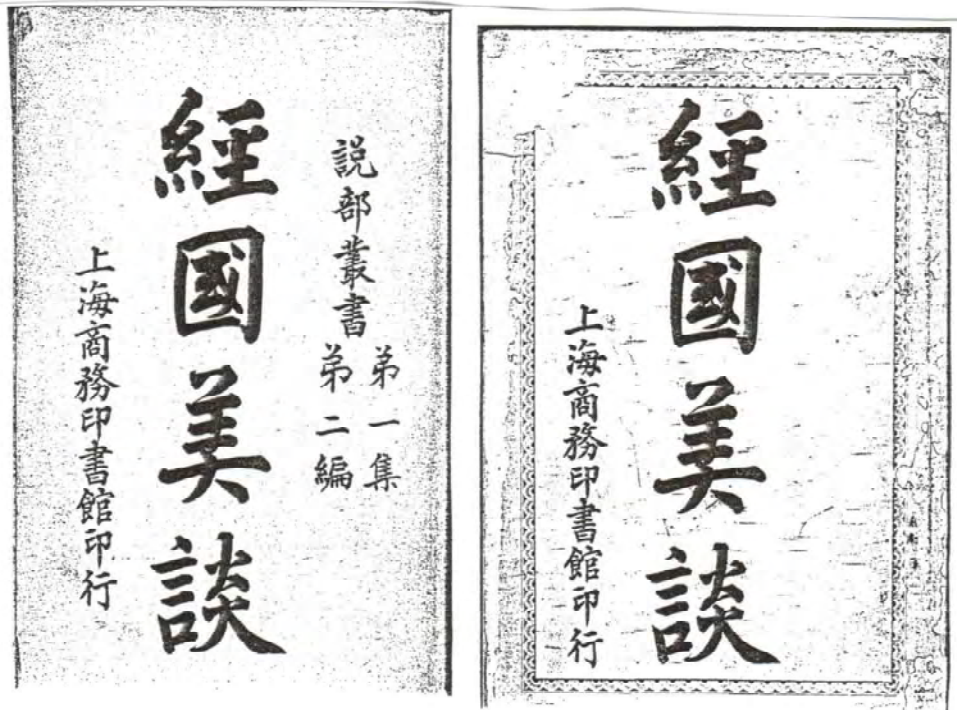 說部叢書
第一集
第二編
經國美談
上海商務印書館印行
經國美談
上海商務印書館印行